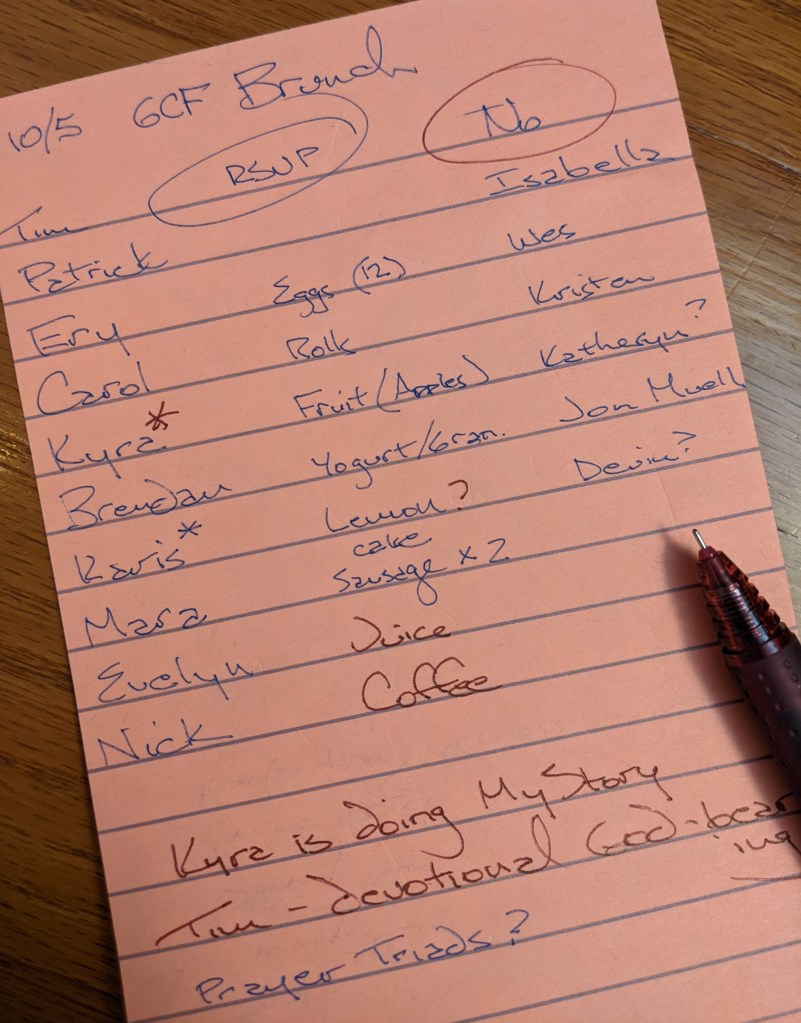 10/5 GCF Brunch
RSVP No
Tim Isabella
Patrick Wes
Ery Eggs (12) Kristen
Carol Rolls Katheryn?
Kyra* Fruit (Apples) Jon Muell
Brendan Yogurt/Gran. Devin?
Karis* Lemon?
cake
Mara Sausage x 2
Evelyn Juice
Nick Coffee
Kyra is doing My Story
Tim - devotional God-bear
ing
Prayer Triads?